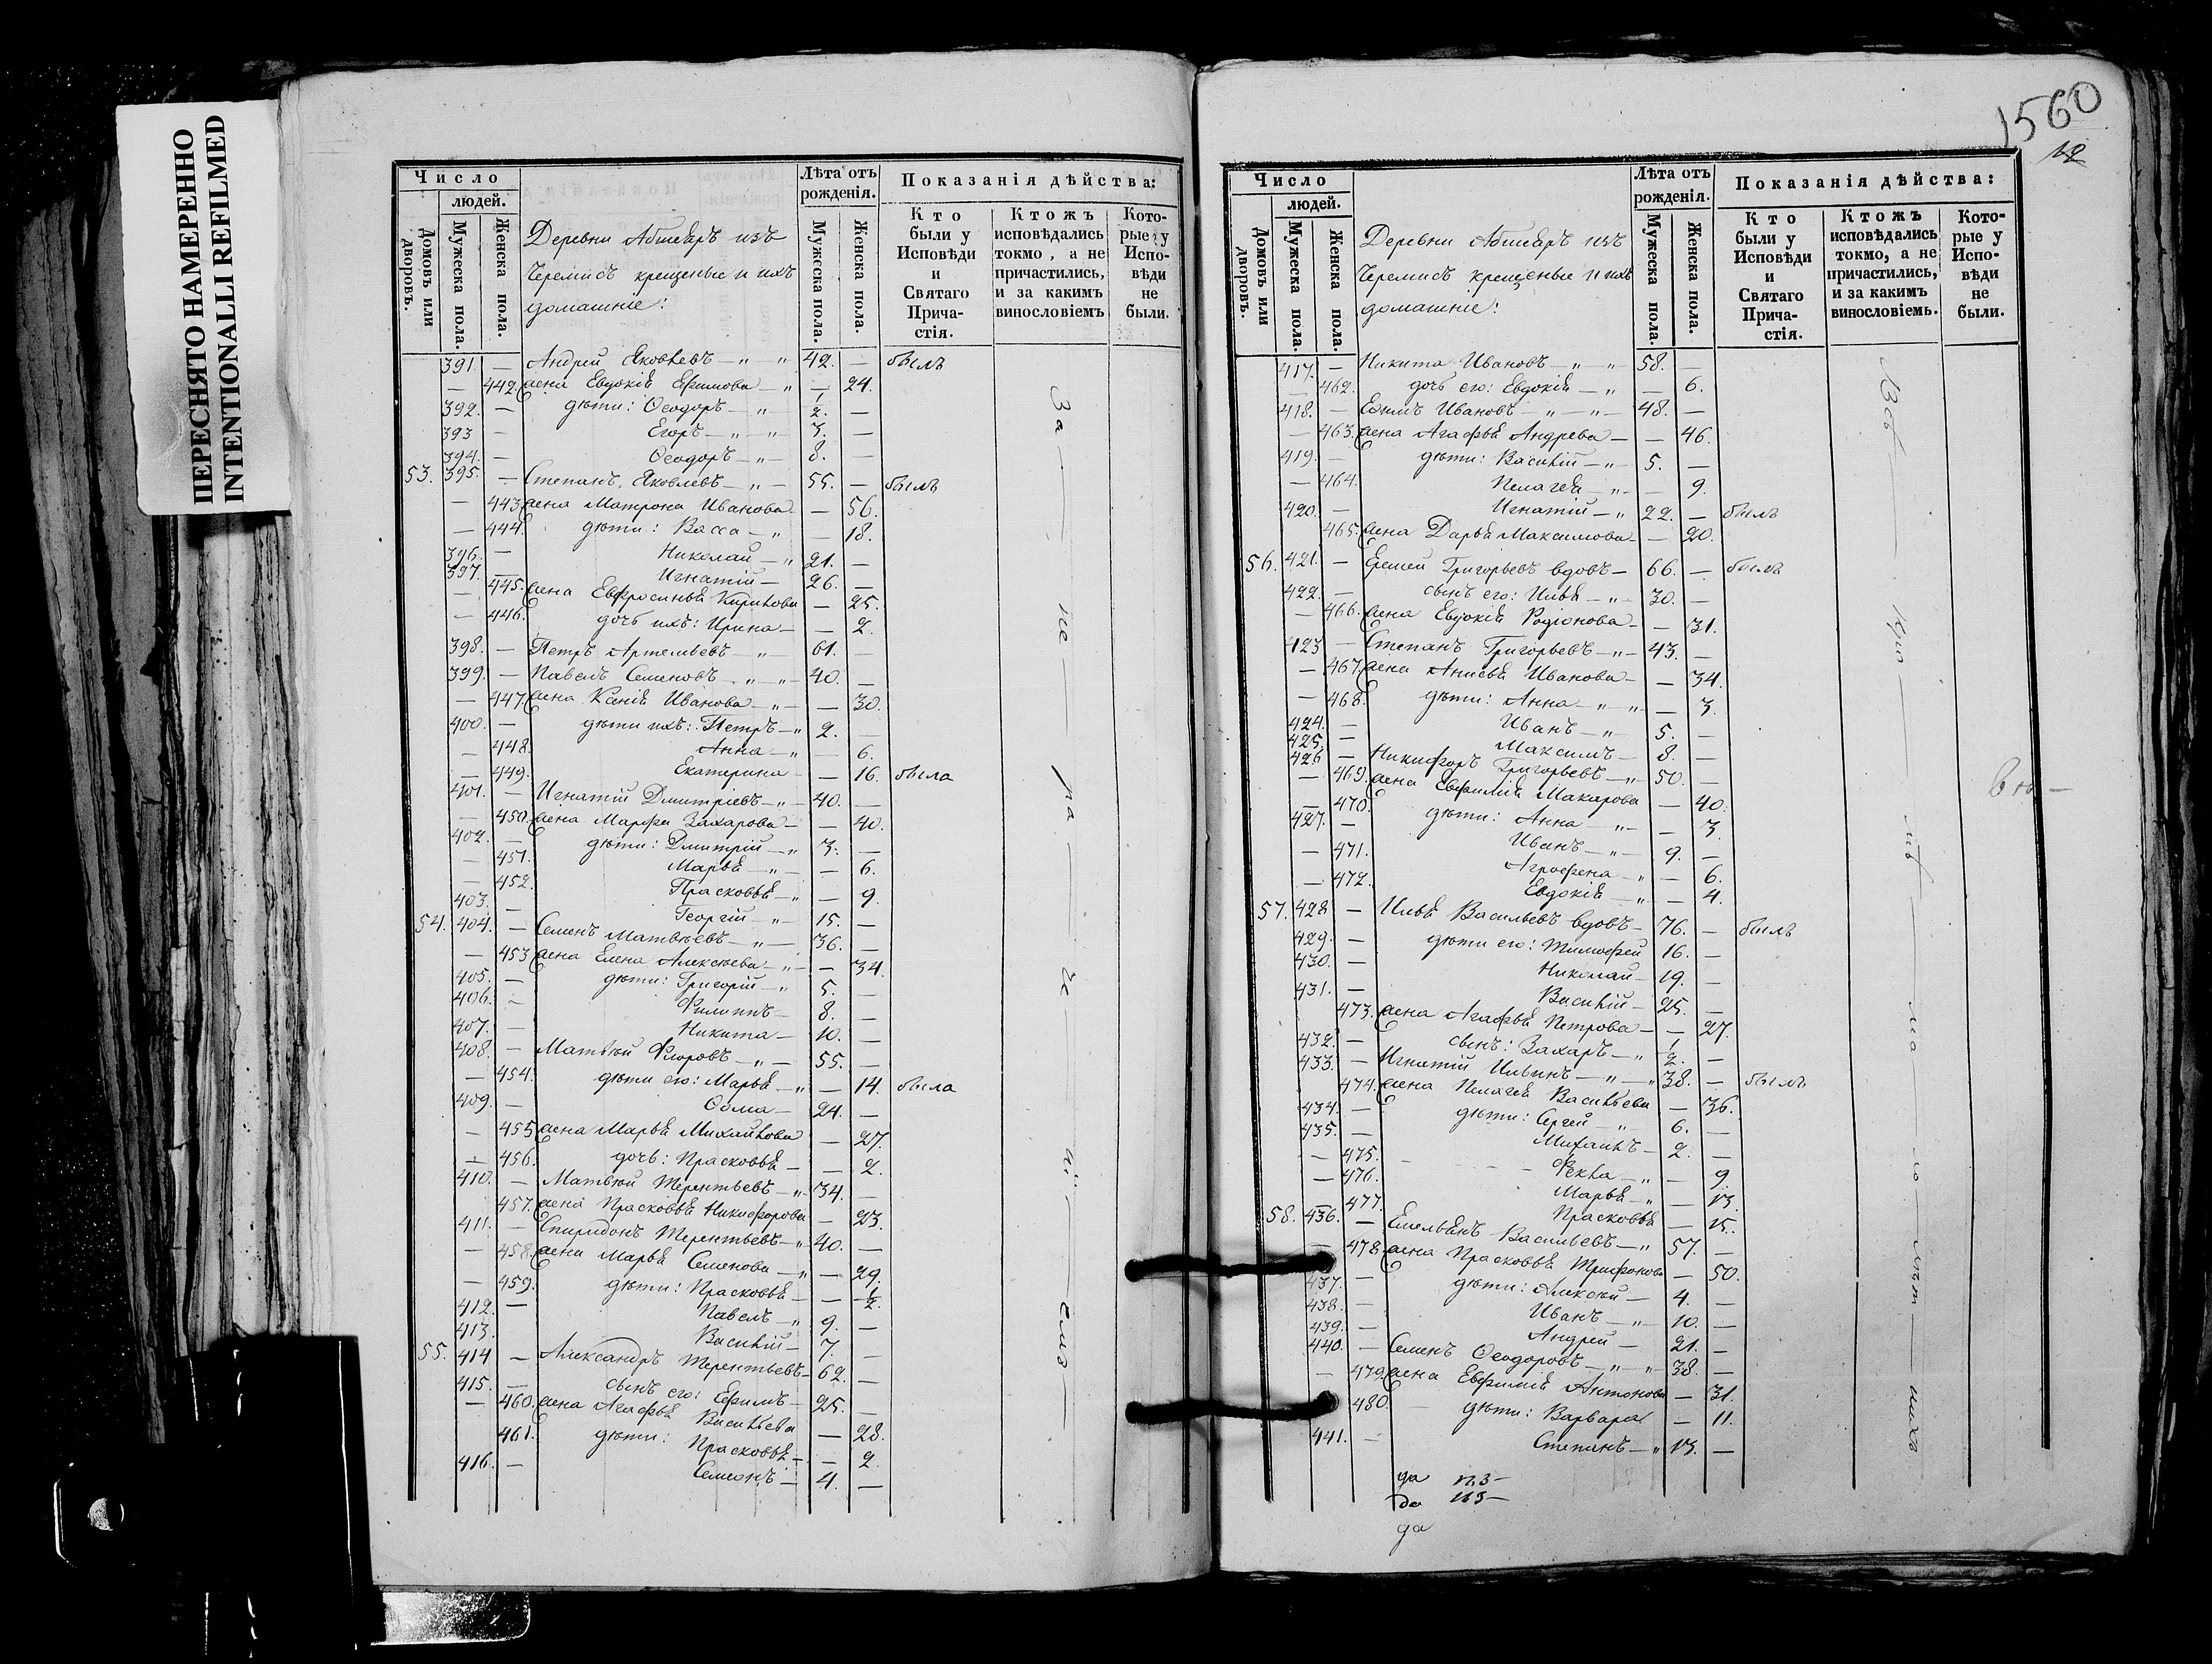 ПЕРЕСНЯТО НАМЕРЕННО
INTENTIONALLI REFILMED
Число
людей.
Домовъ или дворовъ.
Мужеска пола.
Женска пола.
Деревни Абшияръ изъ
Черемисъ крещеные и ихъ
домашніе:
Лѣта отъ рожденія.
Мужеска пола.
Женска пола.
Показанія дѣйства:
Кто были у Исповѣди и Святаго Прича-стія.
Ктожъ исповѣдались токмо, а не причастились, и за какимъ винословіемъ
Кото-рые у Испо-вѣди не были.
391. — Андрей Яковлевъ — „ — „ 42. — былъ
— 442. жена Евдокія Ефимова — „ — 24.
392. — дѣти: Ѳеодоръ — „ — 1/2. —
393 — Егоръ — „ — „ — 3. —
394. — Ѳеодоръ — „ — 8. —
53. 395. — Степанъ Яковлевъ — „ — 55. — былъ
— 443 жена Матрона Иванова — — 56.
— 444. дѣти: Васса — „ — 18.
396. — Николай — „ 21. —
397. — Игнатій — 26. —
— 445. жена Евфросинья Кирилова — 25.
— 446. дочь ихъ: Ирина — — 2.
398. — Петръ Артемьевъ — „ — 61. —
399. — Павелъ Семеновъ — „ — „ — 40. —
— 447. жена Ксенія Иванова — „ — — 30.
400. — дѣти ихъ: Петръ — „ 2. —
— 448. Анна — „ — 6.
— 449. Екатерина — — 16. была
401. — Игнатій Дмитріевъ — „ — 40. —
— 450. жена Марфа Захарова — — 40.
402. — дѣти: Дмитрій — „ 3. —
— 451. Марья — „ — — 6.
— 452. Прасковья — „ — 9.
403. — Георгій — „ — 15. —
54. 404. — Семенъ Матвѣевъ — „ — 36. —
— 453 жена Елена Алексѣева — „ — — 34.
405. — дѣти: Григорій — „ 5. —
406. — Филиппъ — 8. —
407. — Никита — 10. —
408. — Матвѣй Флоровъ — „ — 55. —
— 454. дѣти его: Марья — „ — 14. была
409. — Ѳома — 24. —
— 455 жена Марья Михайлова — 27.
— 456. дочь: Прасковья — — 2.
410. — Матвѣй Терентьевъ — „ 34. —
457. жена Прасковья Никифорова — 23.
411. — Спиридонъ Терентьевъ — „ 40. —
— 458. жена Марья Семенова — „ — 29.
— 459. дѣти: Прасковья — — 1/2.
412. — Павелъ — „ 9. —
413. Василій — 7. —
55. 414 — Александръ Терентьевъ — 62. —
415. — сынъ его: Ефимъ — 25. —
— 460. жена Агафья Васильева — 28.
461. дѣти: Прасковья — — 2.
416. — Семенъ — 4. —
За — не — ра — че — ні — емъ —
1560
12
Число
людей.
Домовъ или дворовъ.
Мужеска пола.
Женска пола.
Деревни Абшияръ изъ
Черемисъ крещеные и ихъ
домашніе:
Лѣта отъ рожденія.
Мужеска пола.
Женска пола.
Показанія дѣйства:
Кто были у Исповѣди и Святаго Прича-стія.
Ктожъ исповѣдались токмо, а не причастились, и за какимъ винословіемъ.
Кото-рые у Испо-вѣди не были.
417. — Никита Ивановъ — „ — „ — 58. —
— 462. дочь его: Евдокія — „ — 6.
418. — Ефимъ Ивановъ — „ — „ — 48. —
— 463. жена Агафья Андреева — — 46.
419. — дѣти: Василій — „ — 5. —
— 464. Пелагея — „ — — 9.
420. — Игнатій — „ 22. — былъ
465. жена Дарья Максимова — — 20.
56. 421. — Еремей Григорьевъ вдовъ — 66. — былъ
422. — сынъ его: Илья — „ — 30. —
— 466. жена Евдокія Родіонова — — 31.
423 — Степанъ Григорьевъ — „ — 43. —
— 467. жена Анисья Иванова — — 34.
— 468. дѣти: Анна — „ — „ — — 3.
424. — Иванъ — „ — 5. —
425. — Максимъ — 8. —
426 — Никифоръ Григорьевъ — „ 50. —
— 469. жена Евфимія Макарова — 40.
— 470. дѣти: Анна — „ — — 3.
427. — Иванъ — „ — 9. —
— 471. Агрофена — „ — 6.
— 472. Евдокія — „ — 4.
57. 428 — Илья Васильевъ вдовъ — 76. — былъ
429. — дѣти его: Тимофей 16. —
430. — Николай — 19. —
431. — Василій — 25. —
473. жена Агафья Петрова — — 27.
432. — сынъ: Захаръ — „ 1/2. —
433. — Игнатій Ильинъ — „ — „ 38. — былъ
474. жена Пелагея Васильева — 36.
434. — дѣти: Сергей — „ — 6. —
435. — Михаилъ — 2. —
— 475. Фекла — „ — 9.
— 476. Марья — „ — 13.
— 477. Прасковья — 15.
58. 436. — Емельянъ Васильевъ — „ 57. —
— 478. жена Прасковья Трифонова — 50.
437. — дѣти: Алексѣй — 4. —
438. — Иванъ — „ — 10. —
439. — Андрей — 21. —
440. — Семенъ Ѳеодоровъ — „ — „ 38. —
— 479. жена Евфимія Антонова — 31.
480. дѣти: Варвара — 11.
441. — Степанъ — „ 13. —